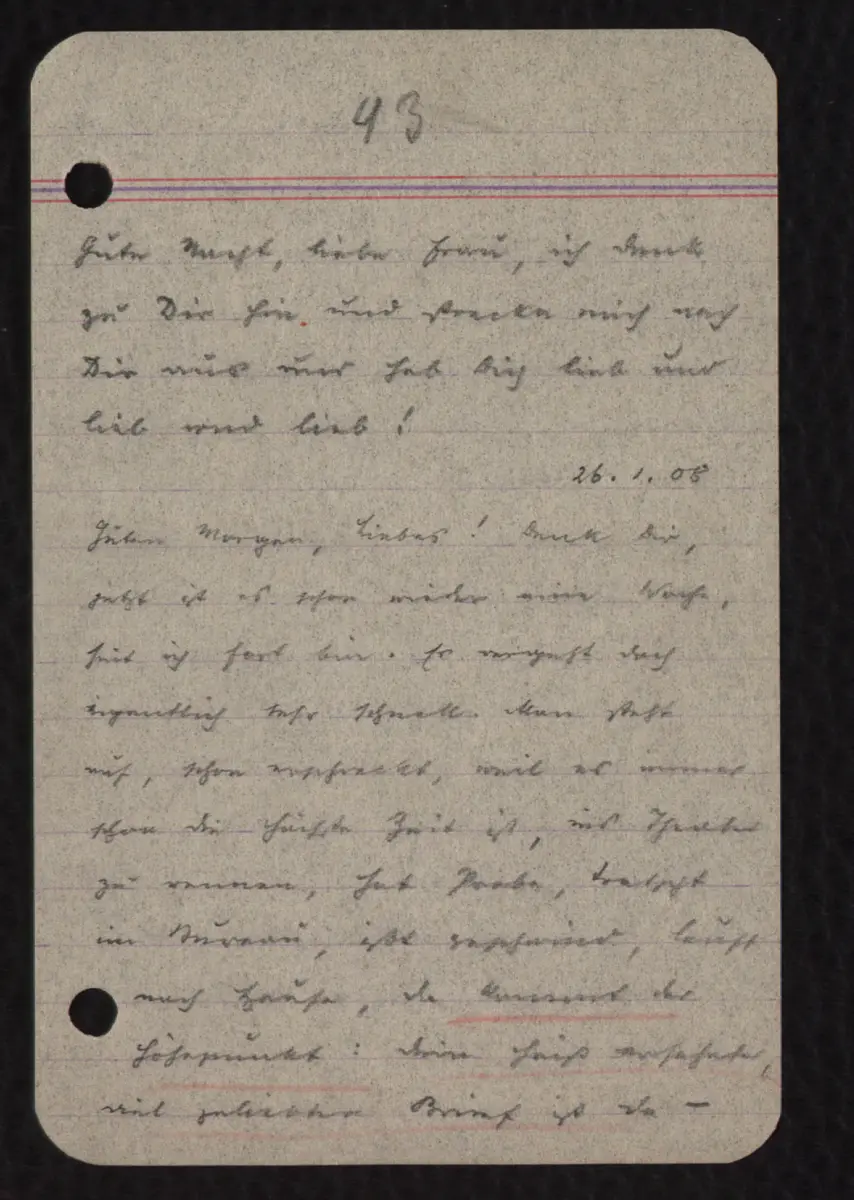 43
Gute Nacht, liebe Frau, ich denk
zu Dir hin und strecke mich nach
Dir aus und hab Dich lieb und
lieb und lieb!
26. 1. 08
Guten Morgen, Liebes! Denk Dir,
jetzt ist es schon wieder eine Woche,
seit ich fort bin. Es vergeht doch
eigentlich sehr schnell. Man steht
auf, schon erschreckt, weil es immer
schon die höchste Zeit ist, ins Theater
zu rennen, hat Probe, tratscht
im Bureau, ißt geschwind, lauft
nach Hause, da kommt der
Höhepunkt: Dein heiß ersehnter,
viel geliebter Brief ist da –